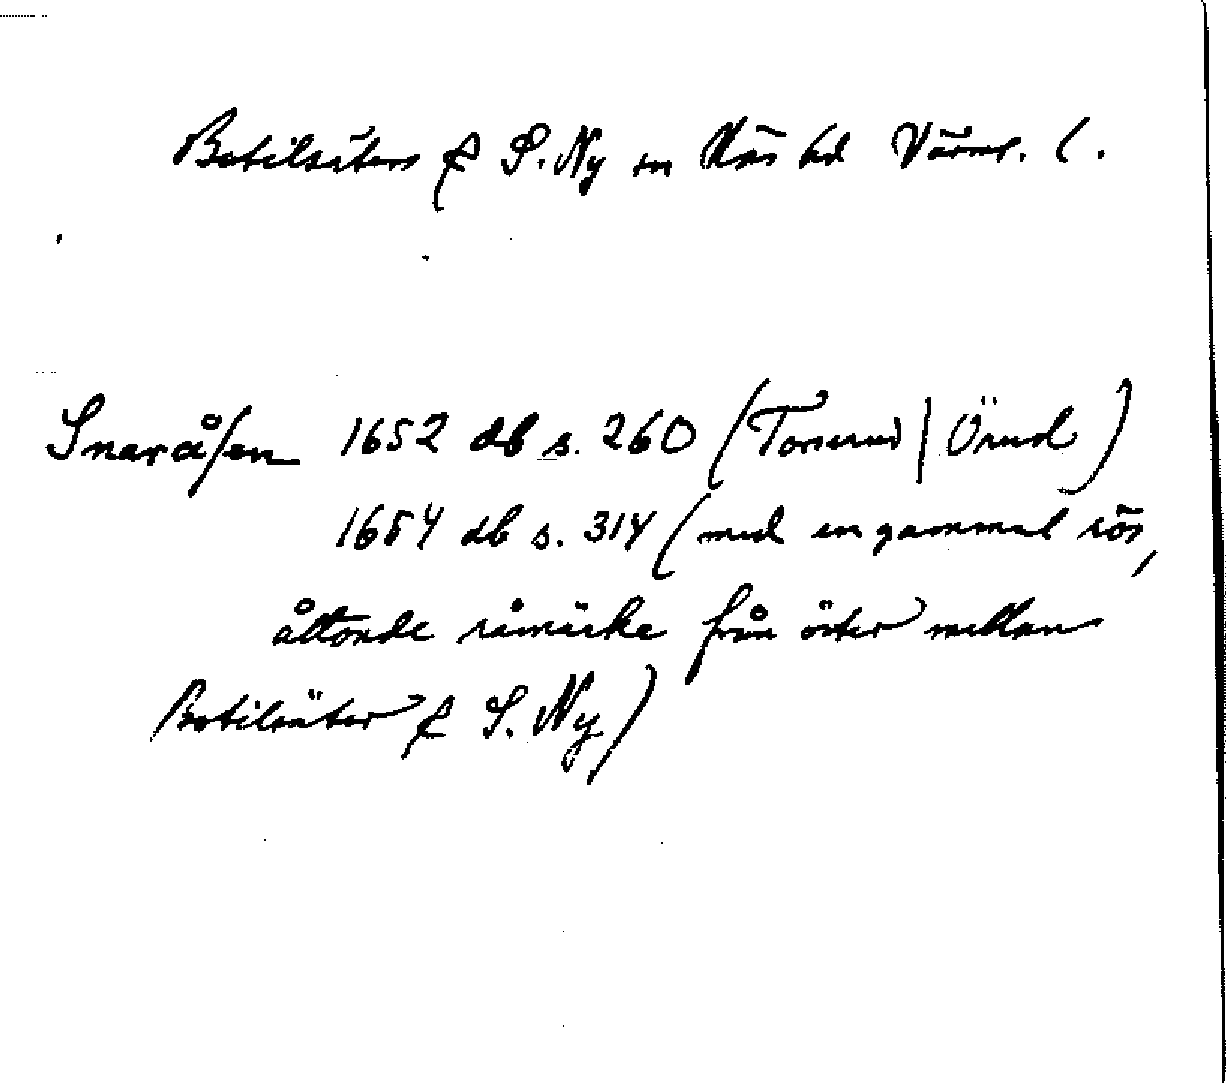 Botilsäters & S. Ny sn Näs hd Värml. l.
Snaråsen 1652 db s. 260 (Torserud | Örud)
1654 db s. 314 (med en gammal rös,
åttonde råmärke från öster mellan
Botilsäter & S. Ny)